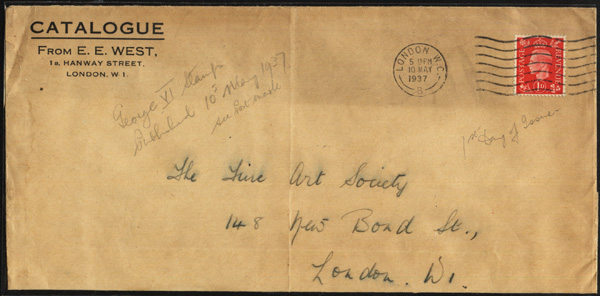 CATALOGUE
FROM E. E. WEST,
1a, HANWAY STREET,
LONDON, W.1.
LONDON. W.C.
5 PM
10 MAY
1937
B
POSTAGE
REVENUE
1D
George VI Stamp
Published 10th May 1937
see Post mark
1st Day of Issue
The Fine Art Society
148 New Bond St.,
London. W1.